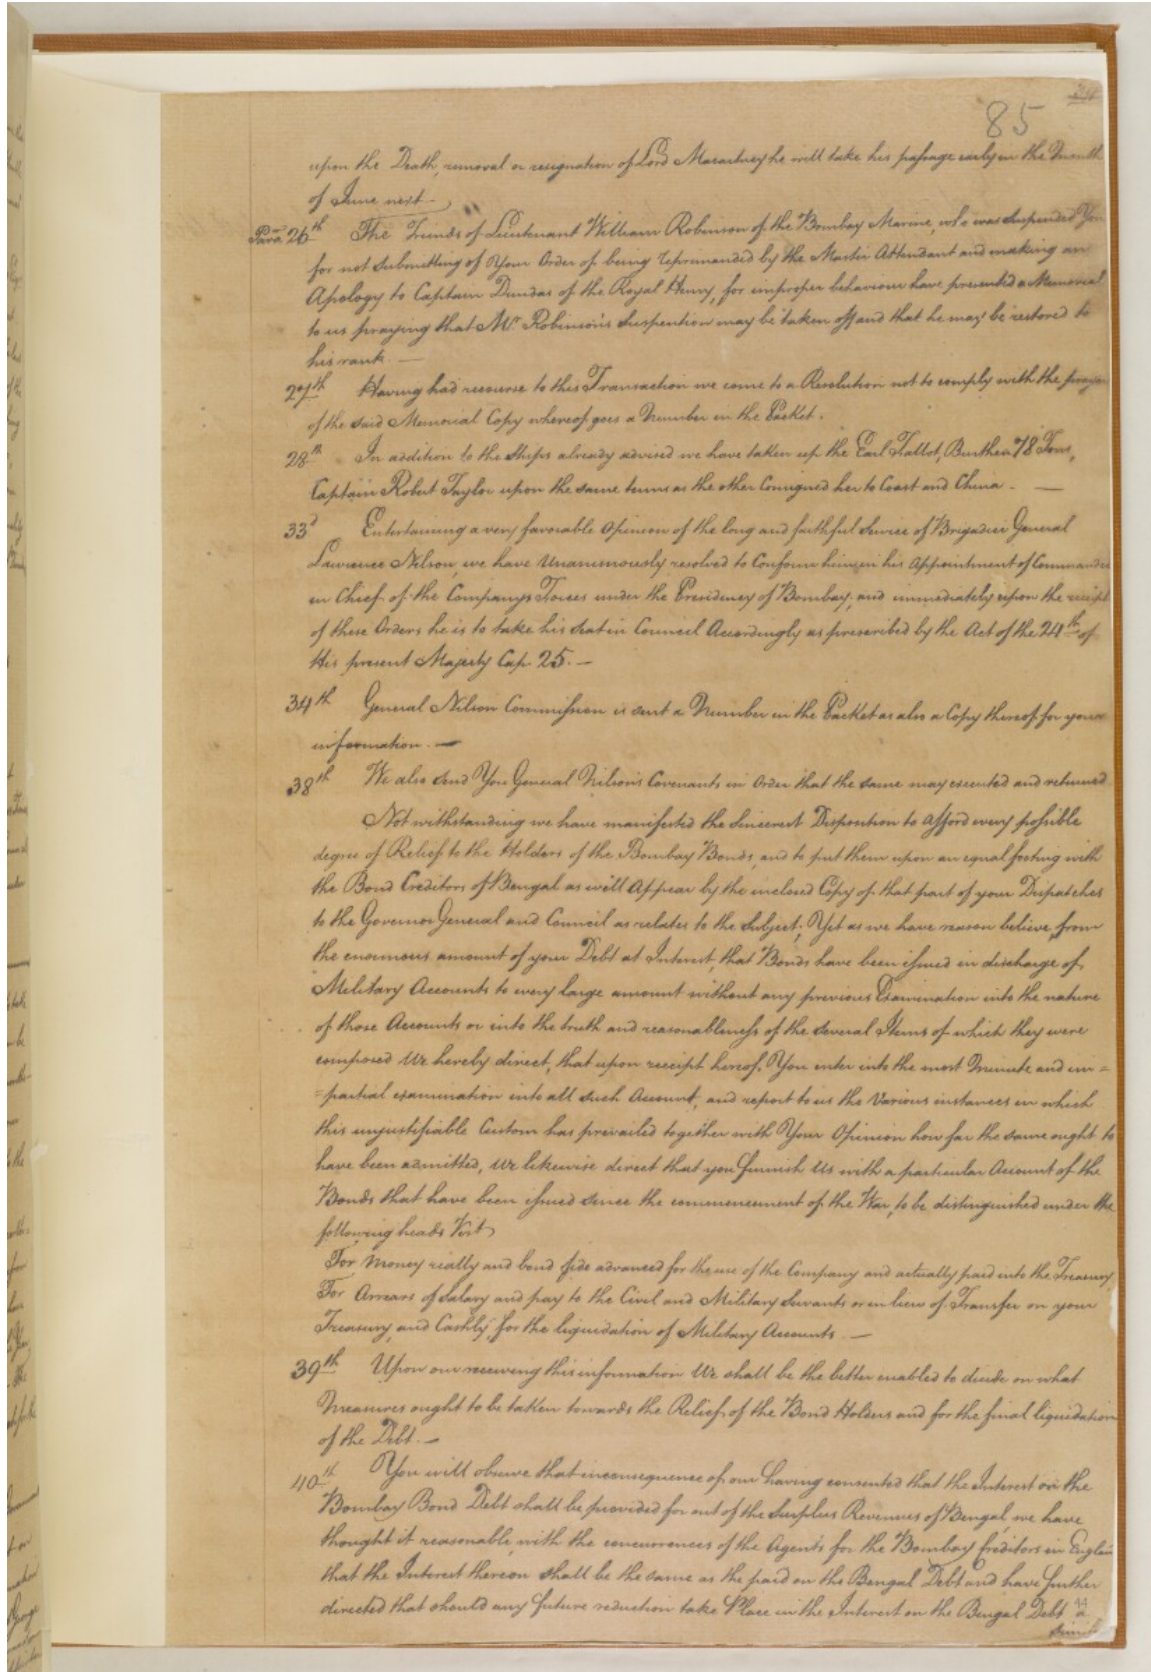 85
upon the Death, removal or resignation of Lord Macartney he will take his passage early in the Month
of June next. —
Para 26th The Friends of Lieutenant William Robinson of the Bombay Marine, who was Suspended You
for not Submitting of Your Order of being reprimanded by the Master Attendant and making an
Apology to Captain Dundas of the Royal Henry, for improper behaviour have presented a Memorial
to us praying that Mr Robinson's Suspention may be taken off and that he may be restored to
his rank. —
27th Having had recourse to this Transaction we come to a Resolution not to comply with the prayer
of the said Memorial Copy whereof goes a Number in the Packet.
28th In addition to the Ships already advised we have taken up the Earl Talbot, Burthen 78 Tons,
Captain Robert Taylor upon the same terms as the other Consigned her to Coast and China. —
33d Entertaining a very favorable Opinion of the long and faithful Service of Brigadier General
Lawrence Nilson, we have Unanimously resolved to Confirm him in his Appointment of Commander
in Chief of the Companys Forces under the Presidency of Bombay, and immediately upon the receipt
of these Orders he is to take his Seat in Council Accordingly as prescribed by the Act of the 24th of
His present Majesty Cap. 25. —
34th General Nilson Commission is sent a Number in the Packet as also a Copy thereof for your
information. —
38th We also Send You General Nilson's Covenants in Order that the same may executed and returned
Not withstanding we have manifested the Sincerest Disposition to afford every possible
degree of Relief to the Holders of the Bombay Bonds, and to put them upon an equal footing with
the Bond Creditors of Bengal as will Appear by the inclosed Copy of that part of your Dispatches
to the Governor General and Council as relates to the Subject; Yet as we have reason believe, from
the enormous amount of your Debt at Interest, that Bonds have been issued in discharge of
Military Accounts to every large amount without any previous Examination into the nature
of those Accounts or into the truth and reasonableness of the Several Items of which they were
composed We hereby direct, that upon receipt hereof, You enter into the most Minute and im=
=partial examination into all such Account, and report to us the Various instances in which
this unjustifiable Custom has prevailed together with Your Opinion how far the same ought to
have been admitted, We likewise direct that you furnish Us with a particular Account of the
Bonds that have been issued since the commencement of the War, to be distinguished under the
following heads Vizt
For Money really and bond fide advanced for the use of the Company and actually paid into the Treasury,
For Arrears of Salary and pay to the Civil and Military Servants or in lieu of Transfer on your
Treasury, and Cashly, for the liquidation of Military Accounts. —
39th Upon our receiving this information We shall be the better enabled to decide on what
Measures ought to be taken towards the Relief of the Bond Holders and for the final liquidation
of the Debt. —
40th You will observe that inconsequence of our having consented that the Interest on the
Bombay Bond Debt shall be provided for out of the Surplus Revenues of Bengal, we have
thought it reasonable, with the concurrences of the Agents for the Bombay Creditors in England
that the Interest thereon shall be the same as the paid on the Bengal Debt and have further
directed that should any future reduction take Place in the Interest on the Bengal Debt a